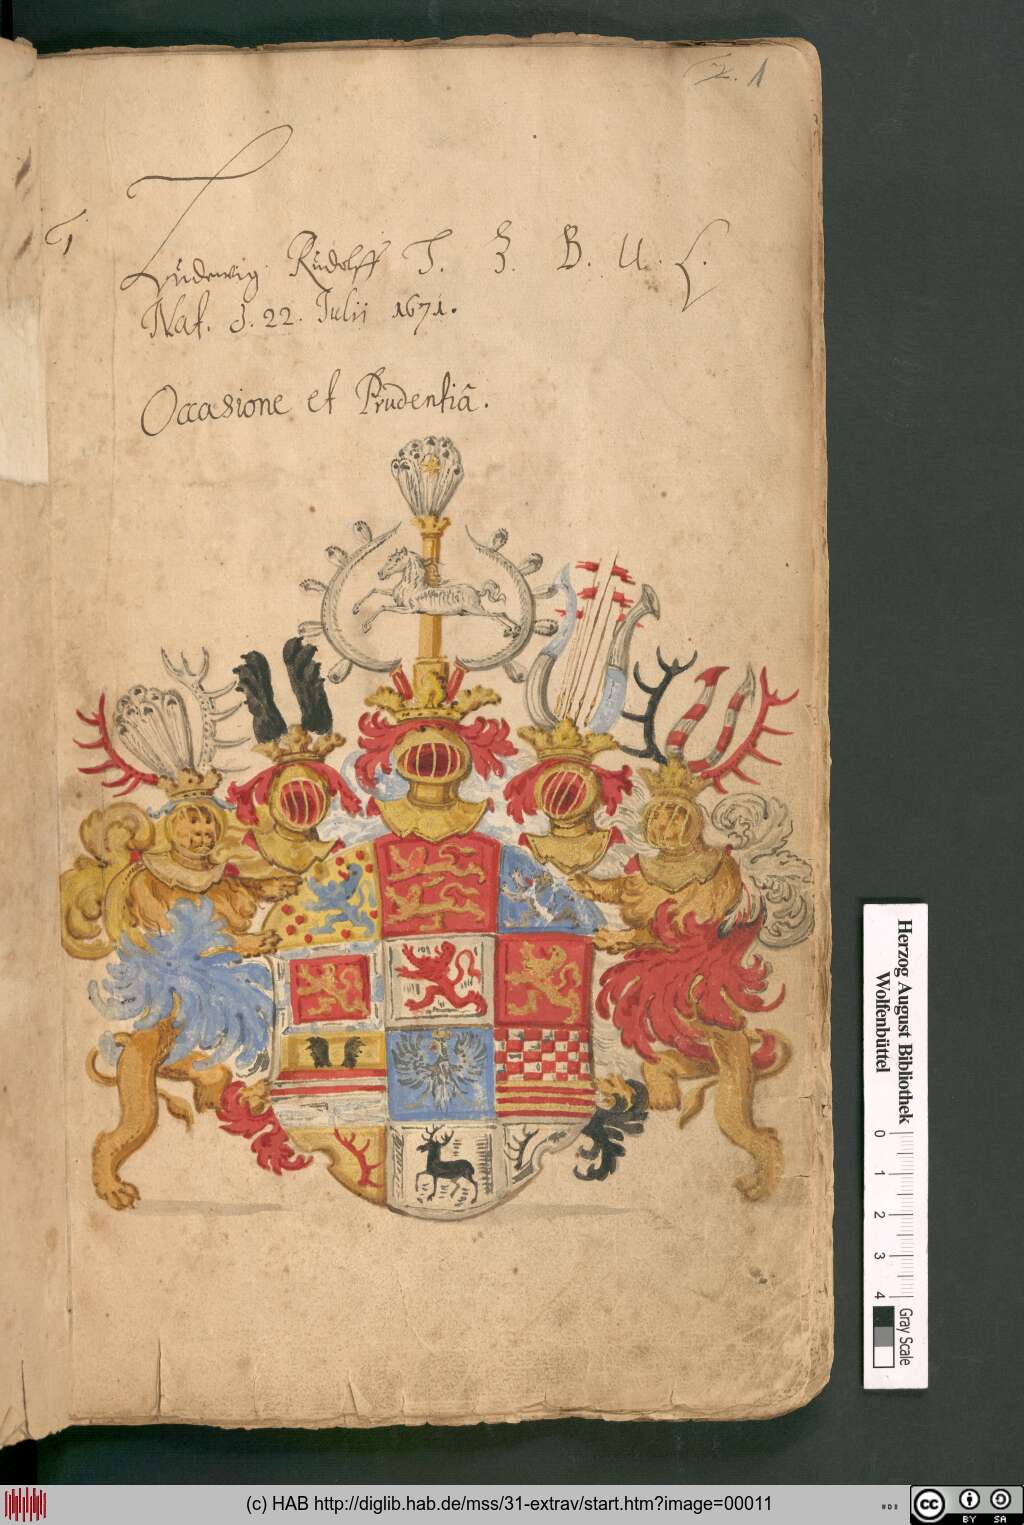 1
Ludewig Rudolff H. Z. B. U. L.
Nat. d. 22. Julii 1671.
Occasione et Prudentiâ.
Herzog August Bibliothek
Wolfenbüttel
0 1 2 3 4
Gray Scale
(c) HAB http://diglib.hab.de/mss/31-extrav/start.htm?image=00011
cc BY SA